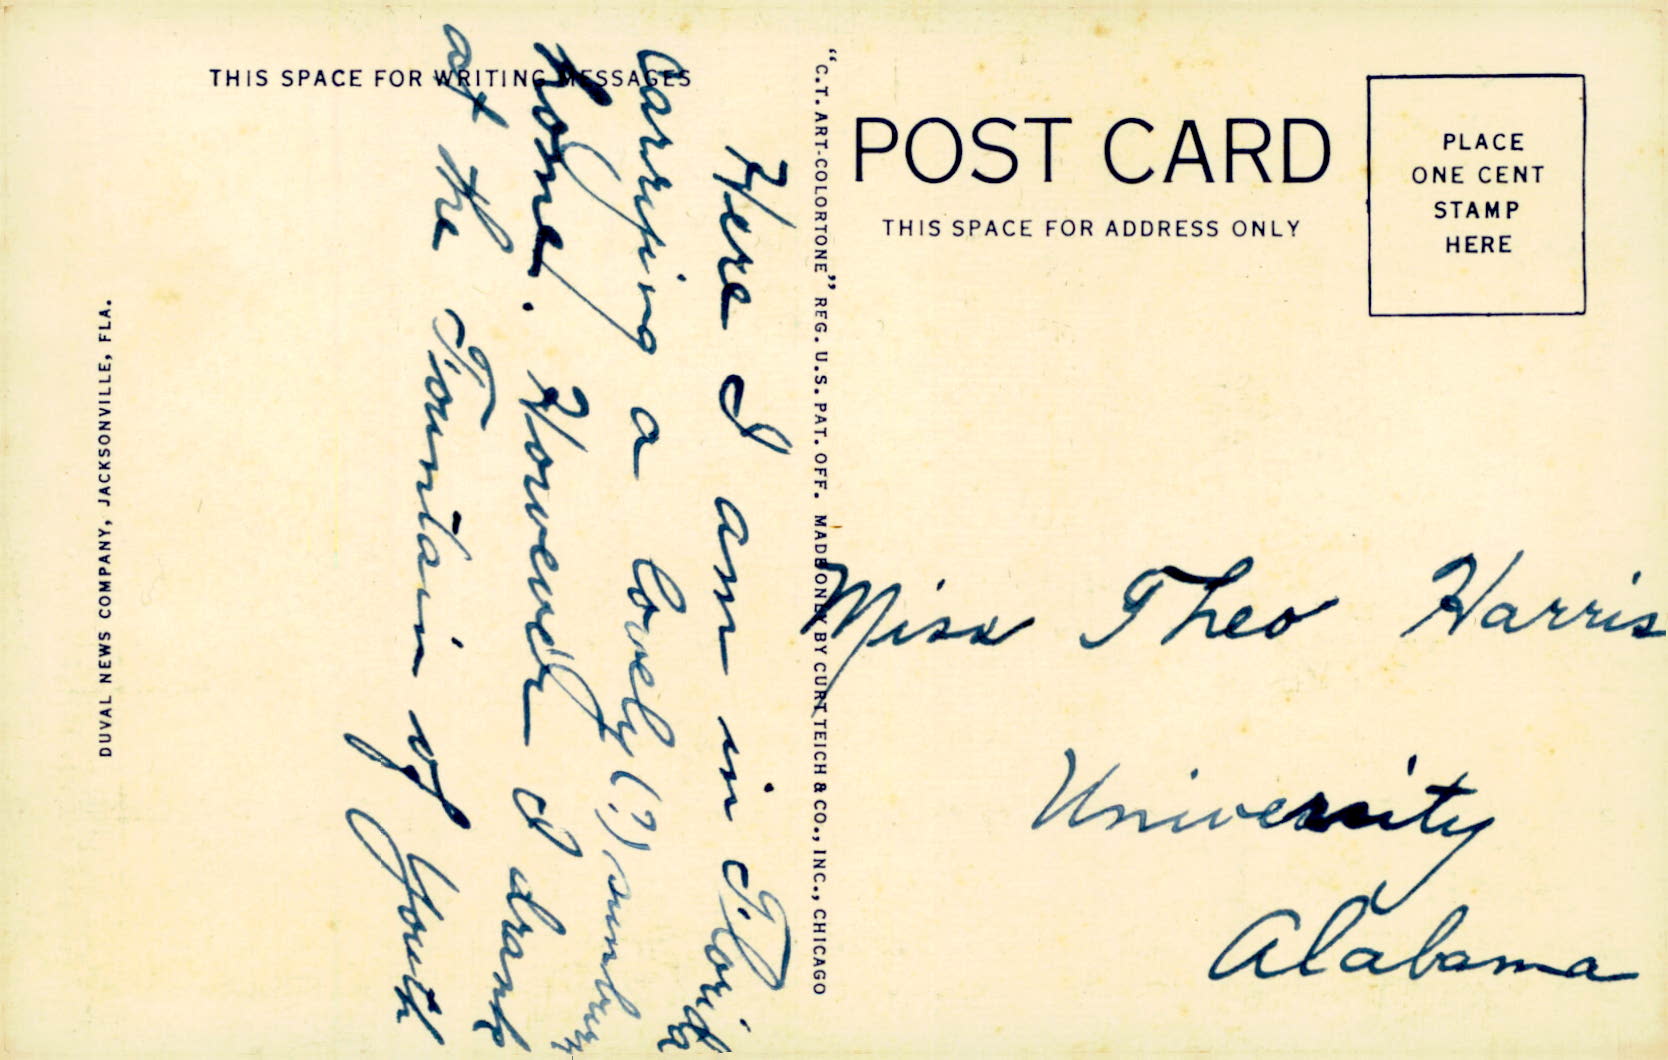 THIS SPACE FOR WRITING MESSAGES
Here I am in Florida
Carrying a lovely (?) sunburn
home. However I drank
at the Fountain of Youth
DUVAL NEWS COMPANY, JACKSONVILLE, FLA.
"C.T. ART-COLORTONE" REG. U.S. PAT. OFF. MADE ONLY BY CURT TEICH & CO., INC., CHICAGO
POST CARD
THIS SPACE FOR ADDRESS ONLY
PLACE
ONE CENT
STAMP
HERE
Miss Theo Harris
University
Alabama